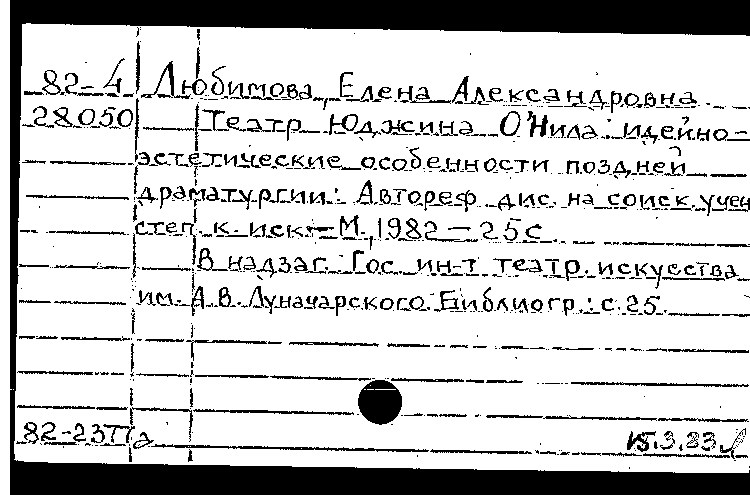 82-4 Любимова, Елена Александровна
28050 Театр Юджина О'Нила: идейно-
эстетические особенности поздней
драматургии: Автореф. дис. на соиск. учен
степ. к. иск. – М., 1982 – 25с
В надзаг. Гос. ин-т театр. искусства
им. А.В. Луначарского. Библиогр.: с. 25.
82-23
15.3.83